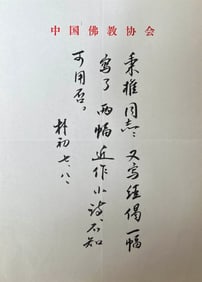 中国佛教协会
秉推同志：又写经偈一幅
写了两幅近作小诗，不知
可用否。
朴初 七、八、